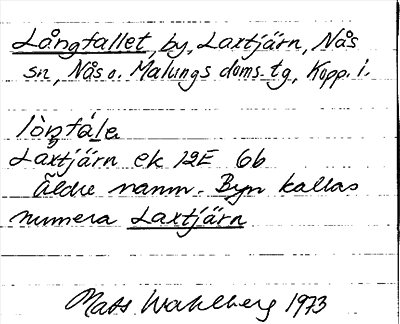 Långfallet, by, Laxtjärn, Nås
sn, Nås o. Malungs doms. tg, Kopp. l.
Laxtjärn ek 12E 6b
Äldre namn. Byn kallas
numera Laxtjärn
Mats Wahlberg 1973